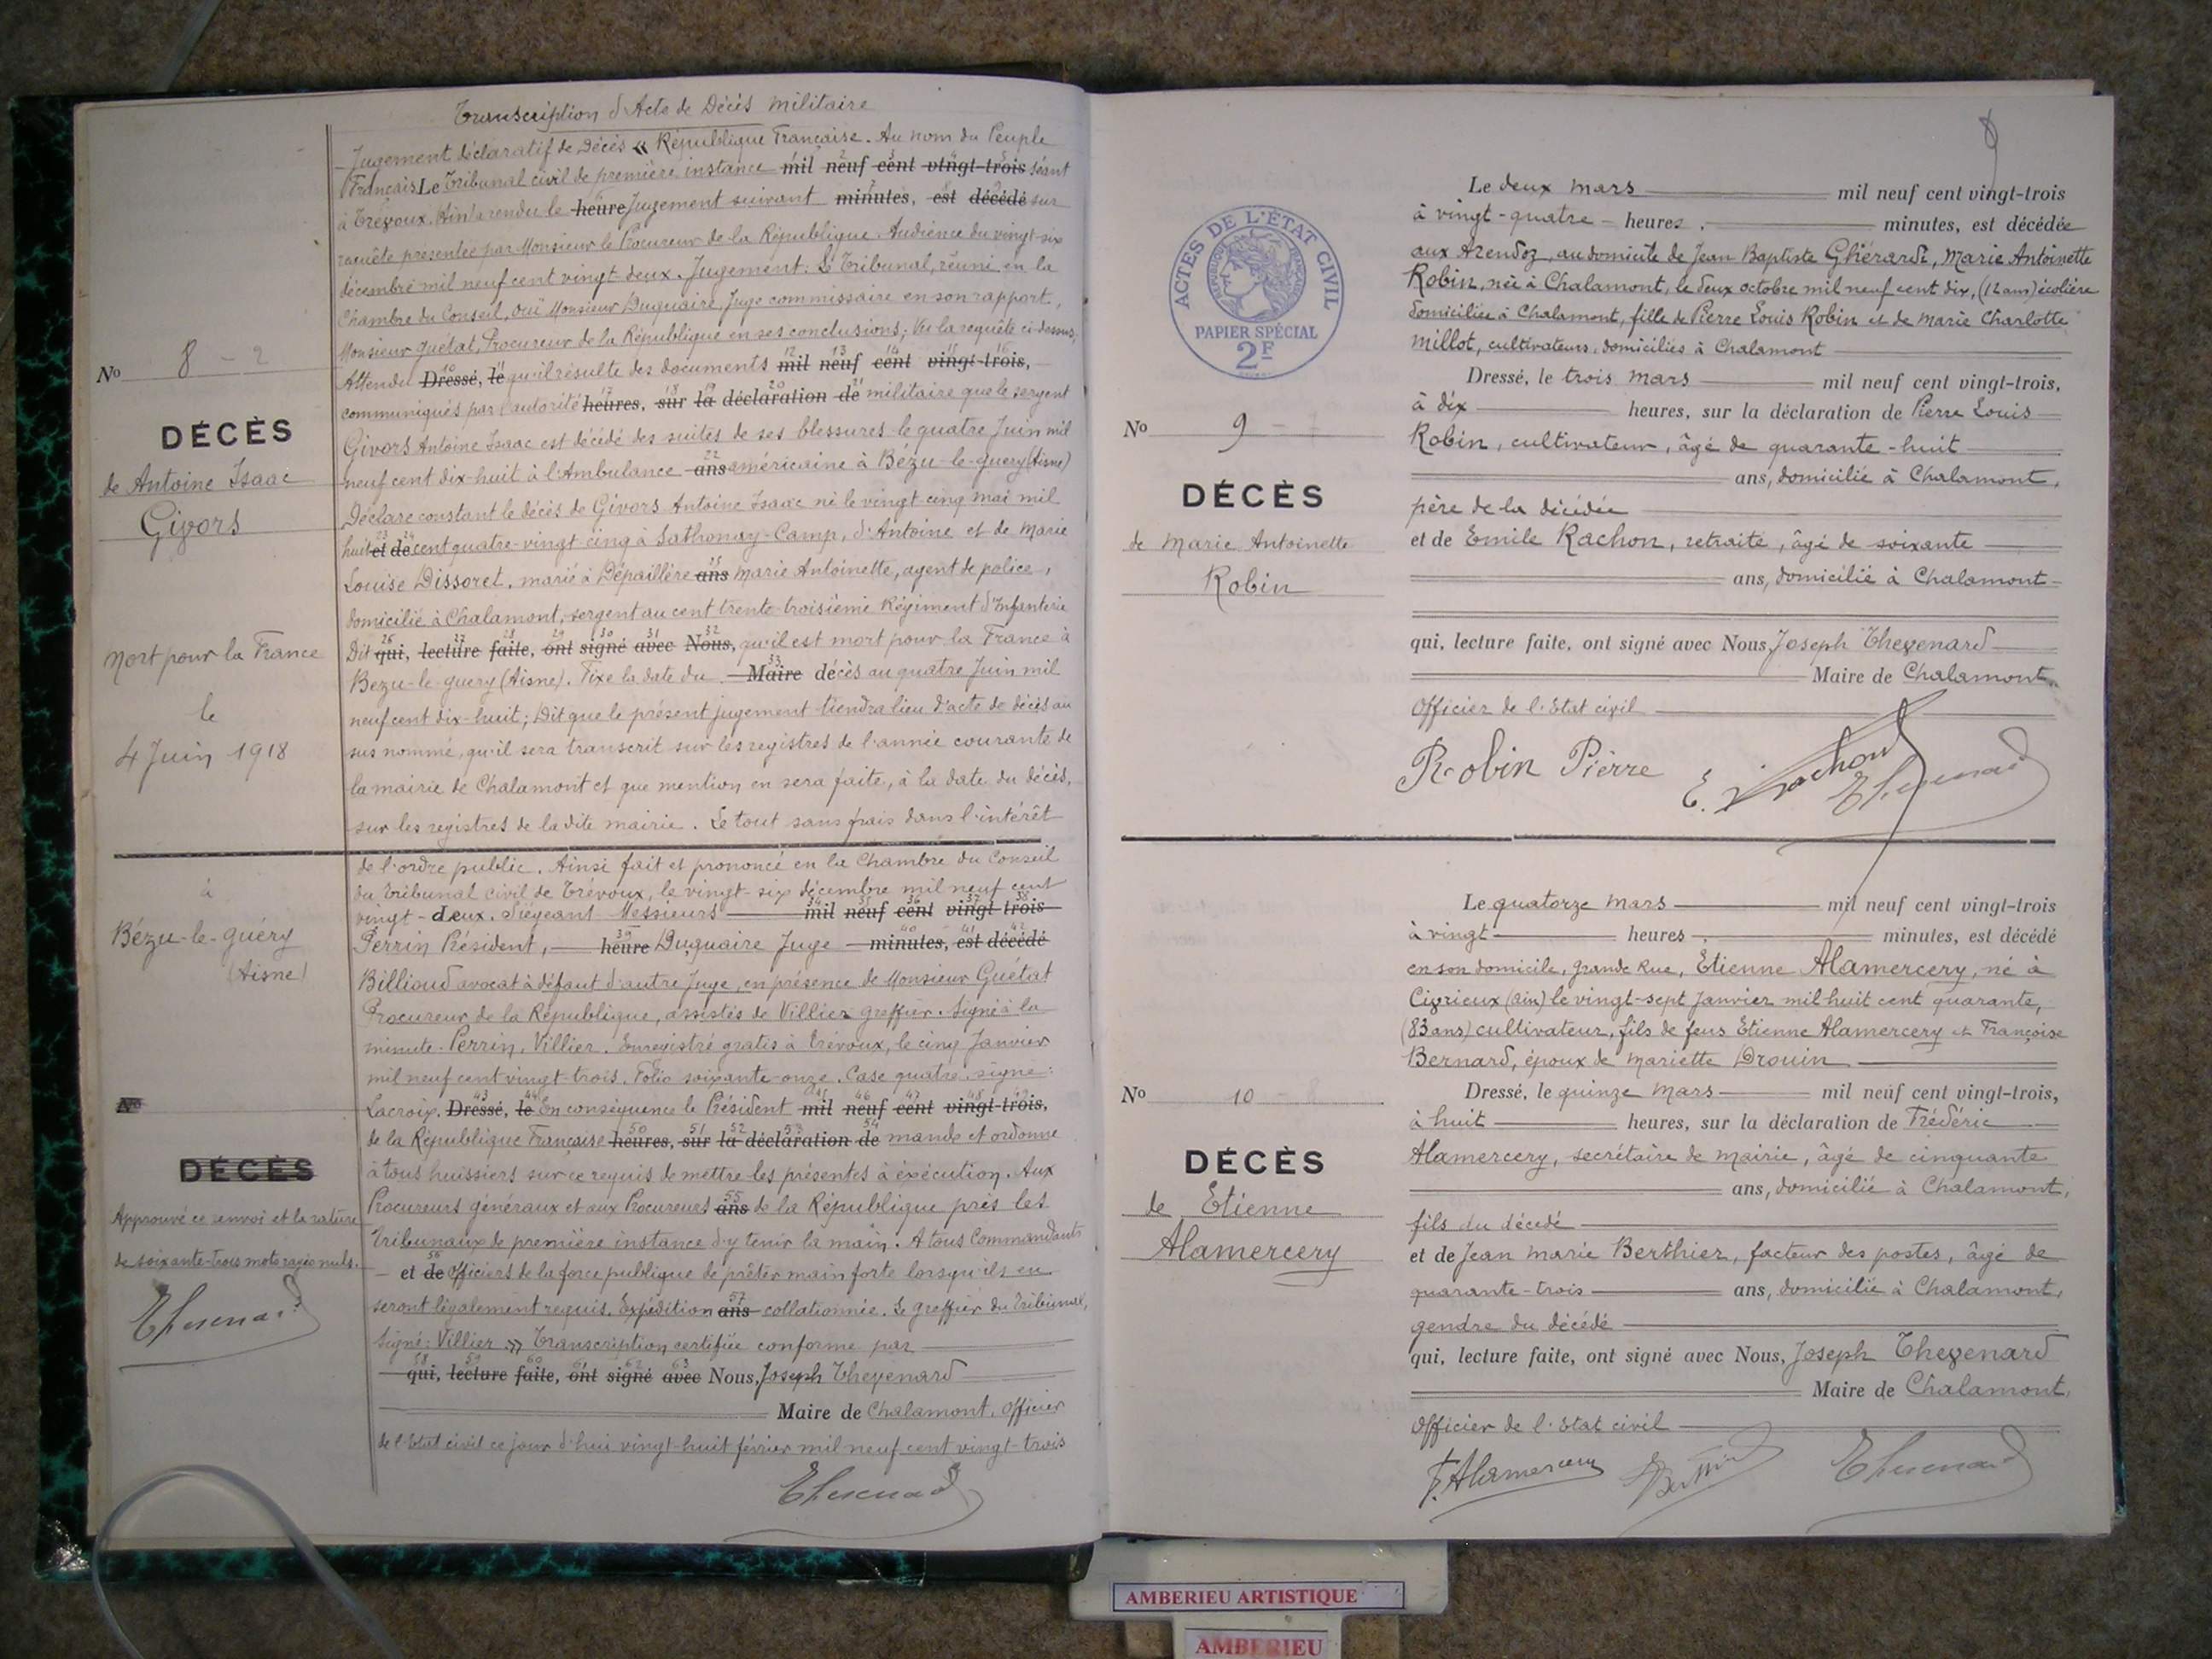 Transcription d'Acte de Décès militaire
Jugement déclaratif de Décès « République Française. Au nom du Peuple
Français Le Tribunal civil de première instance mil neuf cent vingt-trois séant
à Trévoux (Ain) a rendu le heure Jugement suivant minutes, est décédé sur
requête présentée par Monsieur le Procureur de la République. Audience du vingt-six
décembre mil neuf cent vingt deux. Jugement: Le Tribunal, réuni en la
Chambre du Conseil, ouï Monsieur Duquaire, Juge commissaire en son rapport,
Monsieur Guétat, Procureur de la République en ses conclusions; Vu la requête ci-dessus;
Attendu Dressé, le qu'il résulte des documents mil neuf cent vingt-trois,
communiqués par l'autorité heures, sur la déclaration de militaire que le sergent
Givors Antoine Isaac est décédé des suites de ses blessures le quatre Juin mil
neuf cent dix-huit à l'Ambulance ans américaine à Bézu-le-guery (Aisne)
Déclare constant le décès de Givors Antoine Isaac né le vingt cinq mai mil
huit et de cent quatre-vingt cinq à Sathonay-Camp, d'Antoine et de Marie
Louise Dissoret, marié à Dépaillère ans Marie Antoinette, agent de police,
domicilié à Chalamont, sergent au cent trente-troisième Régiment d'Infanterie
Dit qui, lecture faite, ont signé avec Nous, qu'il est mort pour la France à
Bezu-le-guery (Aisne). Fixe la date du Maire décès au quatre Juin mil
neuf cent dix-huit; Dit que le présent jugement tiendra lieu d'acte de décès au
sus nommé, qu'il sera transcrit sur les registres de l'année courante de
la mairie de Chalamont et que mention en sera faite, à la date du décès,
sur les registres de la dite mairie. Le tout sans frais dans l'intérêt
de l'ordre public. Ainsi fait et prononcé en la Chambre du Conseil
du Tribunal civil de Trévoux, le vingt-six décembre mil neuf cent
vingt-deux. Siégeant Messieurs mil neuf cent vingt trois
Perrin Président, heure Duquaire Juge minutes, est décédé
Billioud avocat à défaut d'autre Juge, en présence de Monsieur Guétat
Procureur de la République, assistés de Villier greffier. Signé à la
minute. Perrin, Villier. Enregistré gratis à Trévoux, le cinq Janvier
mil neuf cent vingt-trois. Folio soixante-onze. Case quatre. signé:
Lacroix. Dressé, le En conséquence le Président mil neuf cent vingt-trois,
de la République Française heures, sur la déclaration de mande et ordonne
à tous huissiers sur ce requis de mettre les présentes à éxécution. Aux
Procureurs généraux et aux Procureurs ans de la République près les
tribunaux de première instance d'y tenir la main. A tous Commandants
et de officiers de la force publique de prêter main forte lorsqu'ils en
seront légalement requis. Expédition ans collationnée. Le greffier du Tribunal,
Signé: Villier » Transcription certifiée conforme par
qui, lecture faite, ont signé avec Nous, Joseph Thevenard
Maire de Chalamont, Officier
de l'Etat civil ce jour d'hui vingt-huit février mil neuf cent vingt-trois
Thevenard
No 8 - 2
DÉCÈS
de Antoine Isaac
Givors
Mort pour la France
le
4 Juin 1918
à
Bézu-le-guéry
(Aisne)
No
DÉCÈS
Approuvé ce renvoi et la rature
de soixante-trois mots rayés nuls.
Thevenard
ACTES DE L'ÉTAT CIVIL
RÉPUBLIQUE FRANÇAISE
PAPIER SPÉCIAL
2F
No 9
DÉCÈS
de Marie Antoinette
Robin
Le deux mars mil neuf cent vingt-trois
à vingt-quatre heures minutes, est décédée
aux Arendoz, au domicile de Jean Baptiste Ghérardi, Marie Antoinette
Robin, née à Chalamont, le deux octobre mil neuf cent dix, (12 ans) écolière
domiciliée à Chalamont, fille de Pierre Louis Robin et de Marie Charlotte
Millot, cultivateurs, domiciliés à Chalamont
Dressé, le trois mars mil neuf cent vingt-trois,
à dix heures, sur la déclaration de Pierre Louis
Robin, cultivateur, âgé de quarante-huit
ans, domicilié à Chalamont,
père de la décédée
et de Emile Rachon, retraité, âgé de soixante
ans, domicilié à Chalamont
qui, lecture faite, ont signé avec Nous, Joseph Thevenard
Maire de Chalamont,
Officier de l'Etat civil
Robin Pierre E. Rachon Thevenard
No 10 - 8
DÉCÈS
de Etienne
Alamercery
Le quatorze mars mil neuf cent vingt-trois
à vingt heures minutes, est décédé
en son domicile, grande Rue, Etienne Alamercery, né à
Civrieux (Ain) le vingt-sept Janvier mil huit cent quarante,
(83 ans) cultivateur, fils de feus Etienne Alamercery et Françoise
Bernard, époux de Mariette Drouin
Dressé, le quinze mars mil neuf cent vingt-trois,
à huit heures, sur la déclaration de Frédéric
Alamercery, secrétaire de mairie, âgé de cinquante
ans, domicilié à Chalamont,
fils du décédé
et de Jean Marie Berthier, facteur des postes, âgé de
quarante-trois ans, domicilié à Chalamont,
gendre du décédé
qui, lecture faite, ont signé avec Nous, Joseph Thevenard
Maire de Chalamont,
Officier de l'Etat civil
F. Alamercery Berthier Thevenard
AMBERIEU ARTISTIQUE
AMBERIEU